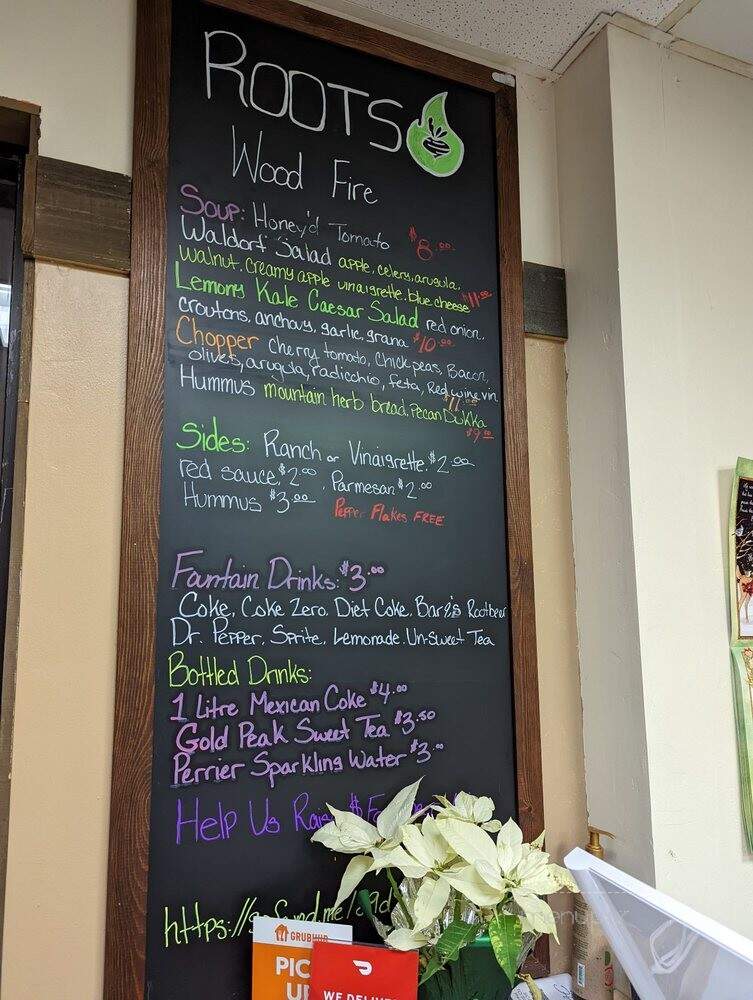 ROOTS
Wood Fire
Soup: Honey'd Tomato $8.00
Waldorf Salad apple, celery, arugula,
walnut, creamy apple vinaigrette, blue cheese $11.00
Lemony Kale Caesar Salad red onion,
croutons, anchovy, garlic, grana $10.00
Chopper cherry tomato, chick peas, Bacon,
olives, arugula, radicchio, feta, Red wine vin
$11.00
Hummus mountain herb bread, Pecan Dukka
$9.00
Sides: Ranch or Vinaigrette $2.00
red sauce, $2.00, Parmesan $2.00
Hummus $3.00 Pepper Flakes FREE
Fountain Drinks: $3.00
Coke, Coke Zero, Diet Coke, Barq's Rootbeer
Dr. Pepper, Sprite, Lemonade, Un-Sweet Tea
Bottled Drinks:
1 Litre Mexican Coke $4.00
Gold Peak Sweet Tea $3.50
Perrier Sparkling Water $3.00
Help Us Raise $
https://gofund.me/
GRUBHUB
PICK
UP
WE DELIVER